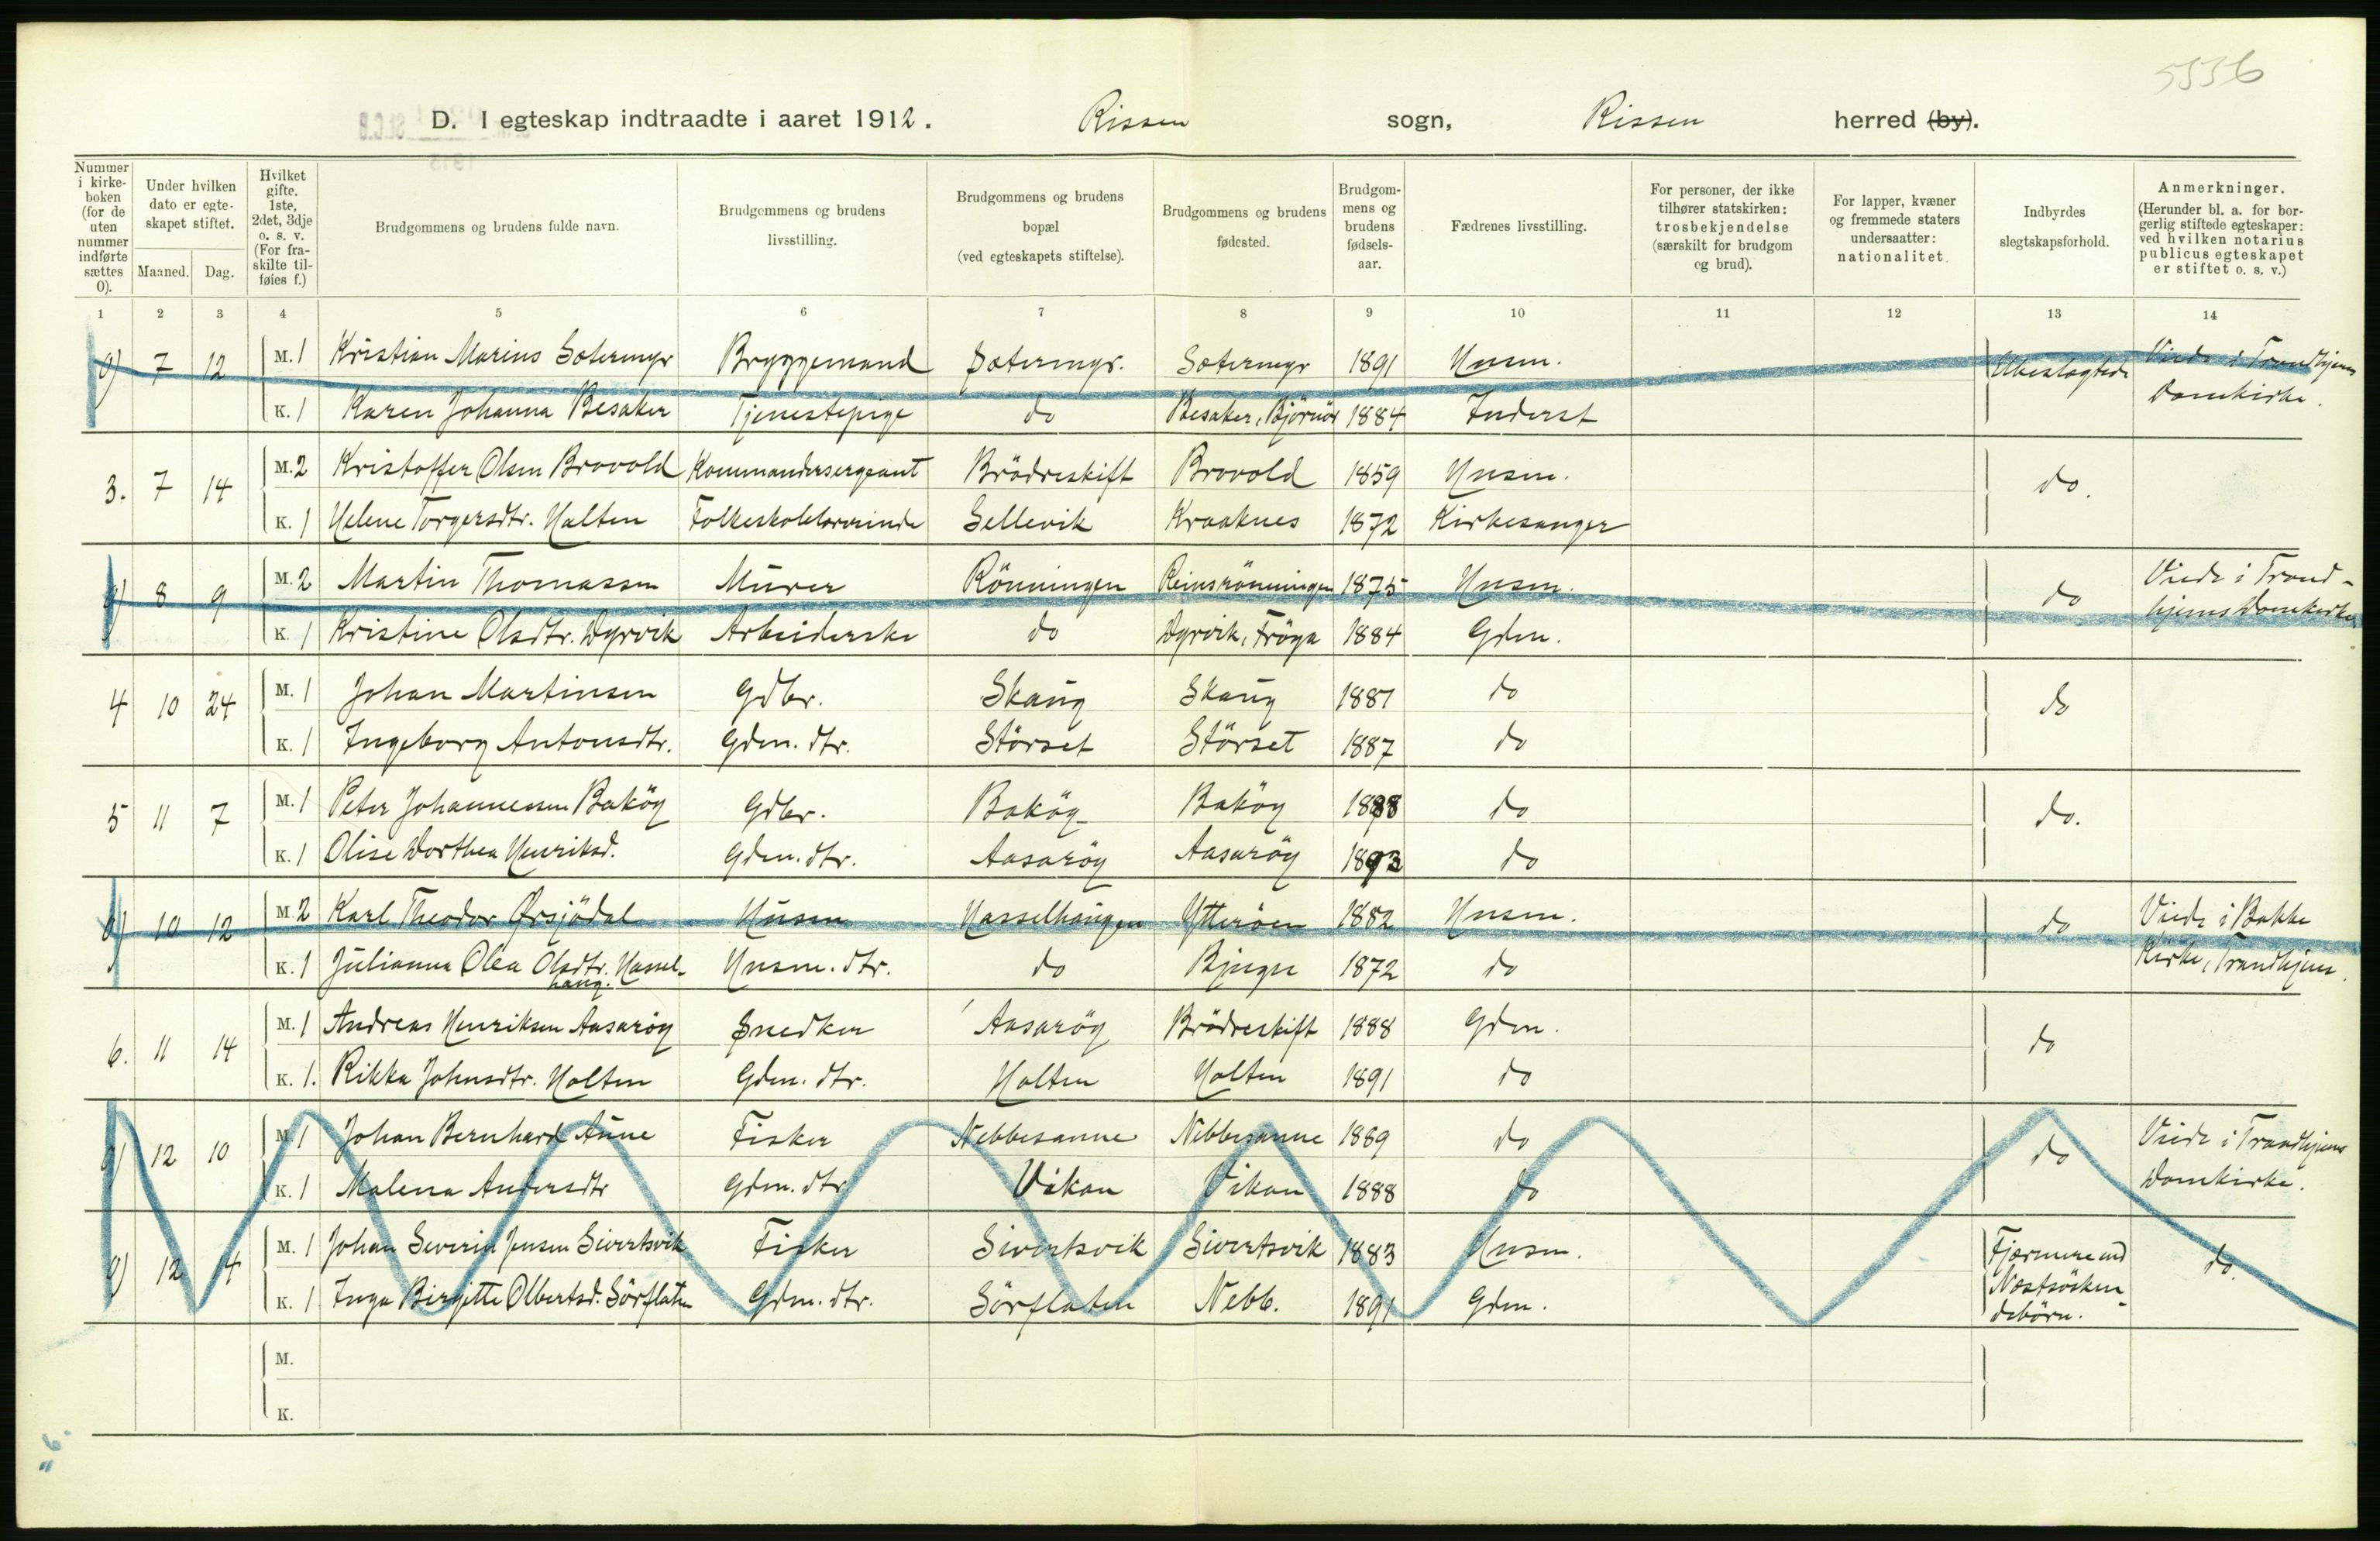 5536
D. I egteskap indtraadte i aaret 1912. Rissen sogn, Rissen herred (by).
Nummer i kirke-boken (for de uten nummer indførte sættes 0).
Under hvilken dato er egte-skapet stiftet.
Maaned. Dag.
Hvilket gifte. 1ste, 2det, 3dje o. s. v. (For fra-skilte til-føies f.)
Brudgommens og brudens fulde navn.
Brudgommens og brudens livsstilling.
Brudgommens og brudens bopæl (ved egteskapets stiftelse).
Brudgommens og brudens fødested.
Brudgom-mens og brudens fødsels-aar.
Fædrenes livsstilling.
For personer, der ikke tilhører statskirken: trosbekjendelse (særskilt for brudgom og brud).
For lapper, kvæner og fremmede staters undersaatter: nationalitet.
Indbyrdes slegtskapsforhold.
Anmerkninger. (Herunder bl. a. for bor-gerlig stiftede egteskaper: ved hvilken notarius publicus egteskapet er stiftet o. s. v.)
1 2 3 4 5 6 7 8 9 10 11 12 13 14
0) 7 12 M. 1 Kristian Marius Sætermyr Bryggemand Sætermyr. Sætermyr 1891 Husm. Ubeslægtede Viede i Trondhjems
K. 1 Karen Johanna Besaker Tjenestepige do Besaker, Bjørnør 1884 Inderst Domkirke.
3. 7 14 M. 2 Kristoffer Olsen Brovold Kommandersergeant Brödreskift Brovold 1859 Husm. do.
K. 1 Helene Torgersdtr. Halten Folkeskolelærerinde Sellevik Kraaknes 1872 Kirkesanger
0) 8 9 M. 2 Martin Thomassen Murer Rönningen Reinsrönningen 1875 Husm. do Viede i Trond-
K. 1 Kristine Olsdtr. Dyrvik Arbeiderske do Dyrvik, Fröya 1884 Gdm. hjems Domkirke
4 10 24 M. 1 Johan Martinsen Gdbr. Skaug Skaug 1881 do do
K. 1 Ingeborg Antonsdtr. Gdm. dtr. Störset Störset 1887 do
5 11 7 M. 1 Peter Johannessen Baköy Gdbr. Baköy Baköy 1888 do do.
K. 1 Olise Dorthea Henriksd. Gdm. dtr. Aasaröy Aasaröy 1893 do
0) 10 12 M. 2 Karl Theodor Ørsjödal Husm Hasselhaugen Ytterøen 1882 Husm. do Viede i Bakke
K. 1 Julianna Olea Olsdtr. Hassel-haug. Husm. dtr. do Bjugn 1872 do Kirke, Trondhjem.
6. 11 14 M. 1 Andreas Henriksen Aasaröy Snedker Aasaröy Brödreskift 1888 Gdm. do
K. 1. Rikka Johnsdtr. Halten Gdm. dtr. Halten Halten 1891 do
0) 12 10 M. 1 Johan Bernhard Aune Fisker Nebbesaune Nebbesaune 1889 do do Viede i Trondhjems
K. 1 Malena Andersdtr Gdm. dtr Vikan Vikan 1888 do Domkirke.
0) 12 4 M. 1 Johan Severin Jensen Sivertsvik Fisker Sivertsvik Sivertsvik 1883 Husm. Fjærmere end Næstsösken-debörn. do.
K. 1 Inga Birgitte Olbertsd. Sörflaten Gdm. dtr. Sörflaten Nebb. 1891 Gdm.
M.
K.
"6.